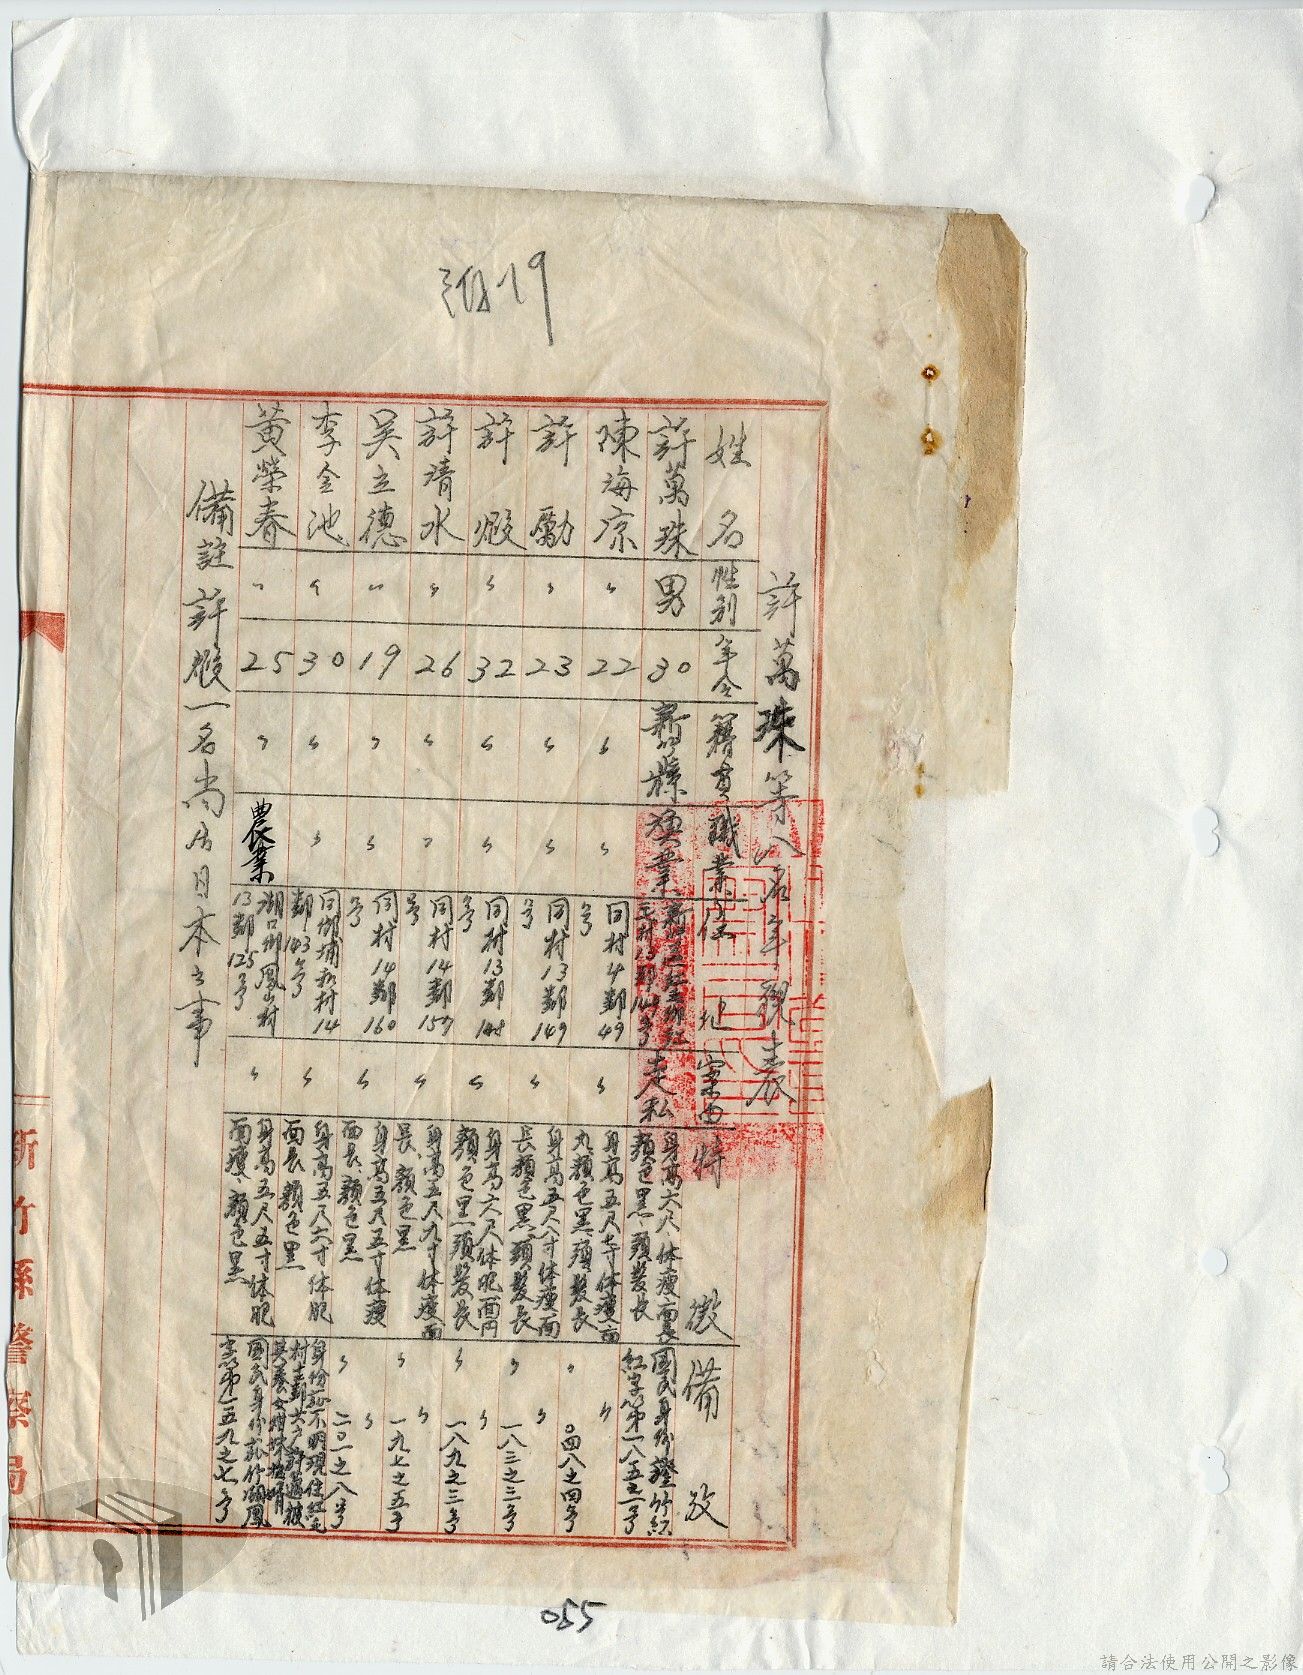 19
許萬珠等八名年貌表
姓名 性別 年令 籍貫 職業 住址 案由 特徵 備攷
許萬珠 男 30 新竹縣 漁業 走私 身高六尺、体瘦、面長 顏色黑、頭髮長 國民身份證竹紅 紅字第一八五之一号
陳海凉 〃 22 〃 〃 同村4鄰49号 〃 身高五尺七寸体瘦、面丸、顏色黑、頭髮長 〃 〃 〇四八之四号
許勵 〃 23 〃 〃 同村13鄰149号 〃 身高五尺八寸体瘦面長顏色黑、頭髮長 〃 〃 一八三之二号
許煅 〃 32 〃 〃 同村13鄰148号 〃 身高六尺体肥面円顏色黑頭髮長 〃 〃 一八九之三号
許清水 〃 26 〃 〃 同村14鄰157号 〃 身高五尺九寸体瘦面長、顏色黑 〃 〃 一九七之五号
吳立德 〃 19 〃 〃 同村14鄰160号 〃 身高五尺五寸体瘦面長、顏色黑 〃 〃 二〇一之八号
李金池 〃 30 〃 〃 同鄉埔和村14鄰143号 〃 身高五尺六寸体肥面長顏色黑 身份証不明現住紅毛村
黃榮春 〃 25 〃 農業 湖口鄉鳳山村13鄰125号 〃 身高五尺五寸体肥面瘦、顏色黑 國民身份証竹湖鳳字第一五九之七号
備註 許煅一名尚居日本之事
新竹縣警察局
055
請合法使用公開之影像